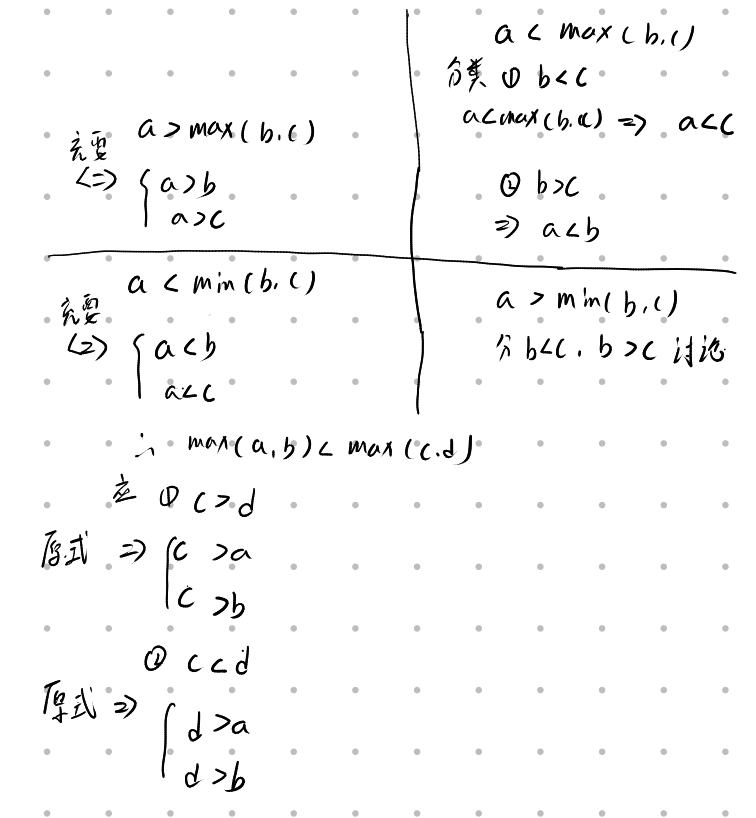 a > max(b.c)
充要
<=> { a>b
a>c
a < max(b.c)
分类 ① b<c
a<max(b.c) => a<c
② b>c
=> a<b
a < min(b.c)
充要
<=> { a<b
a<c
a > min(b.c)
分 b<c . b>c 讨论
∴ max(a.b)< max(c.d)
应 ① c>d
原式 => { c >a
c >b
② c<d
原式 => { d>a
d>b